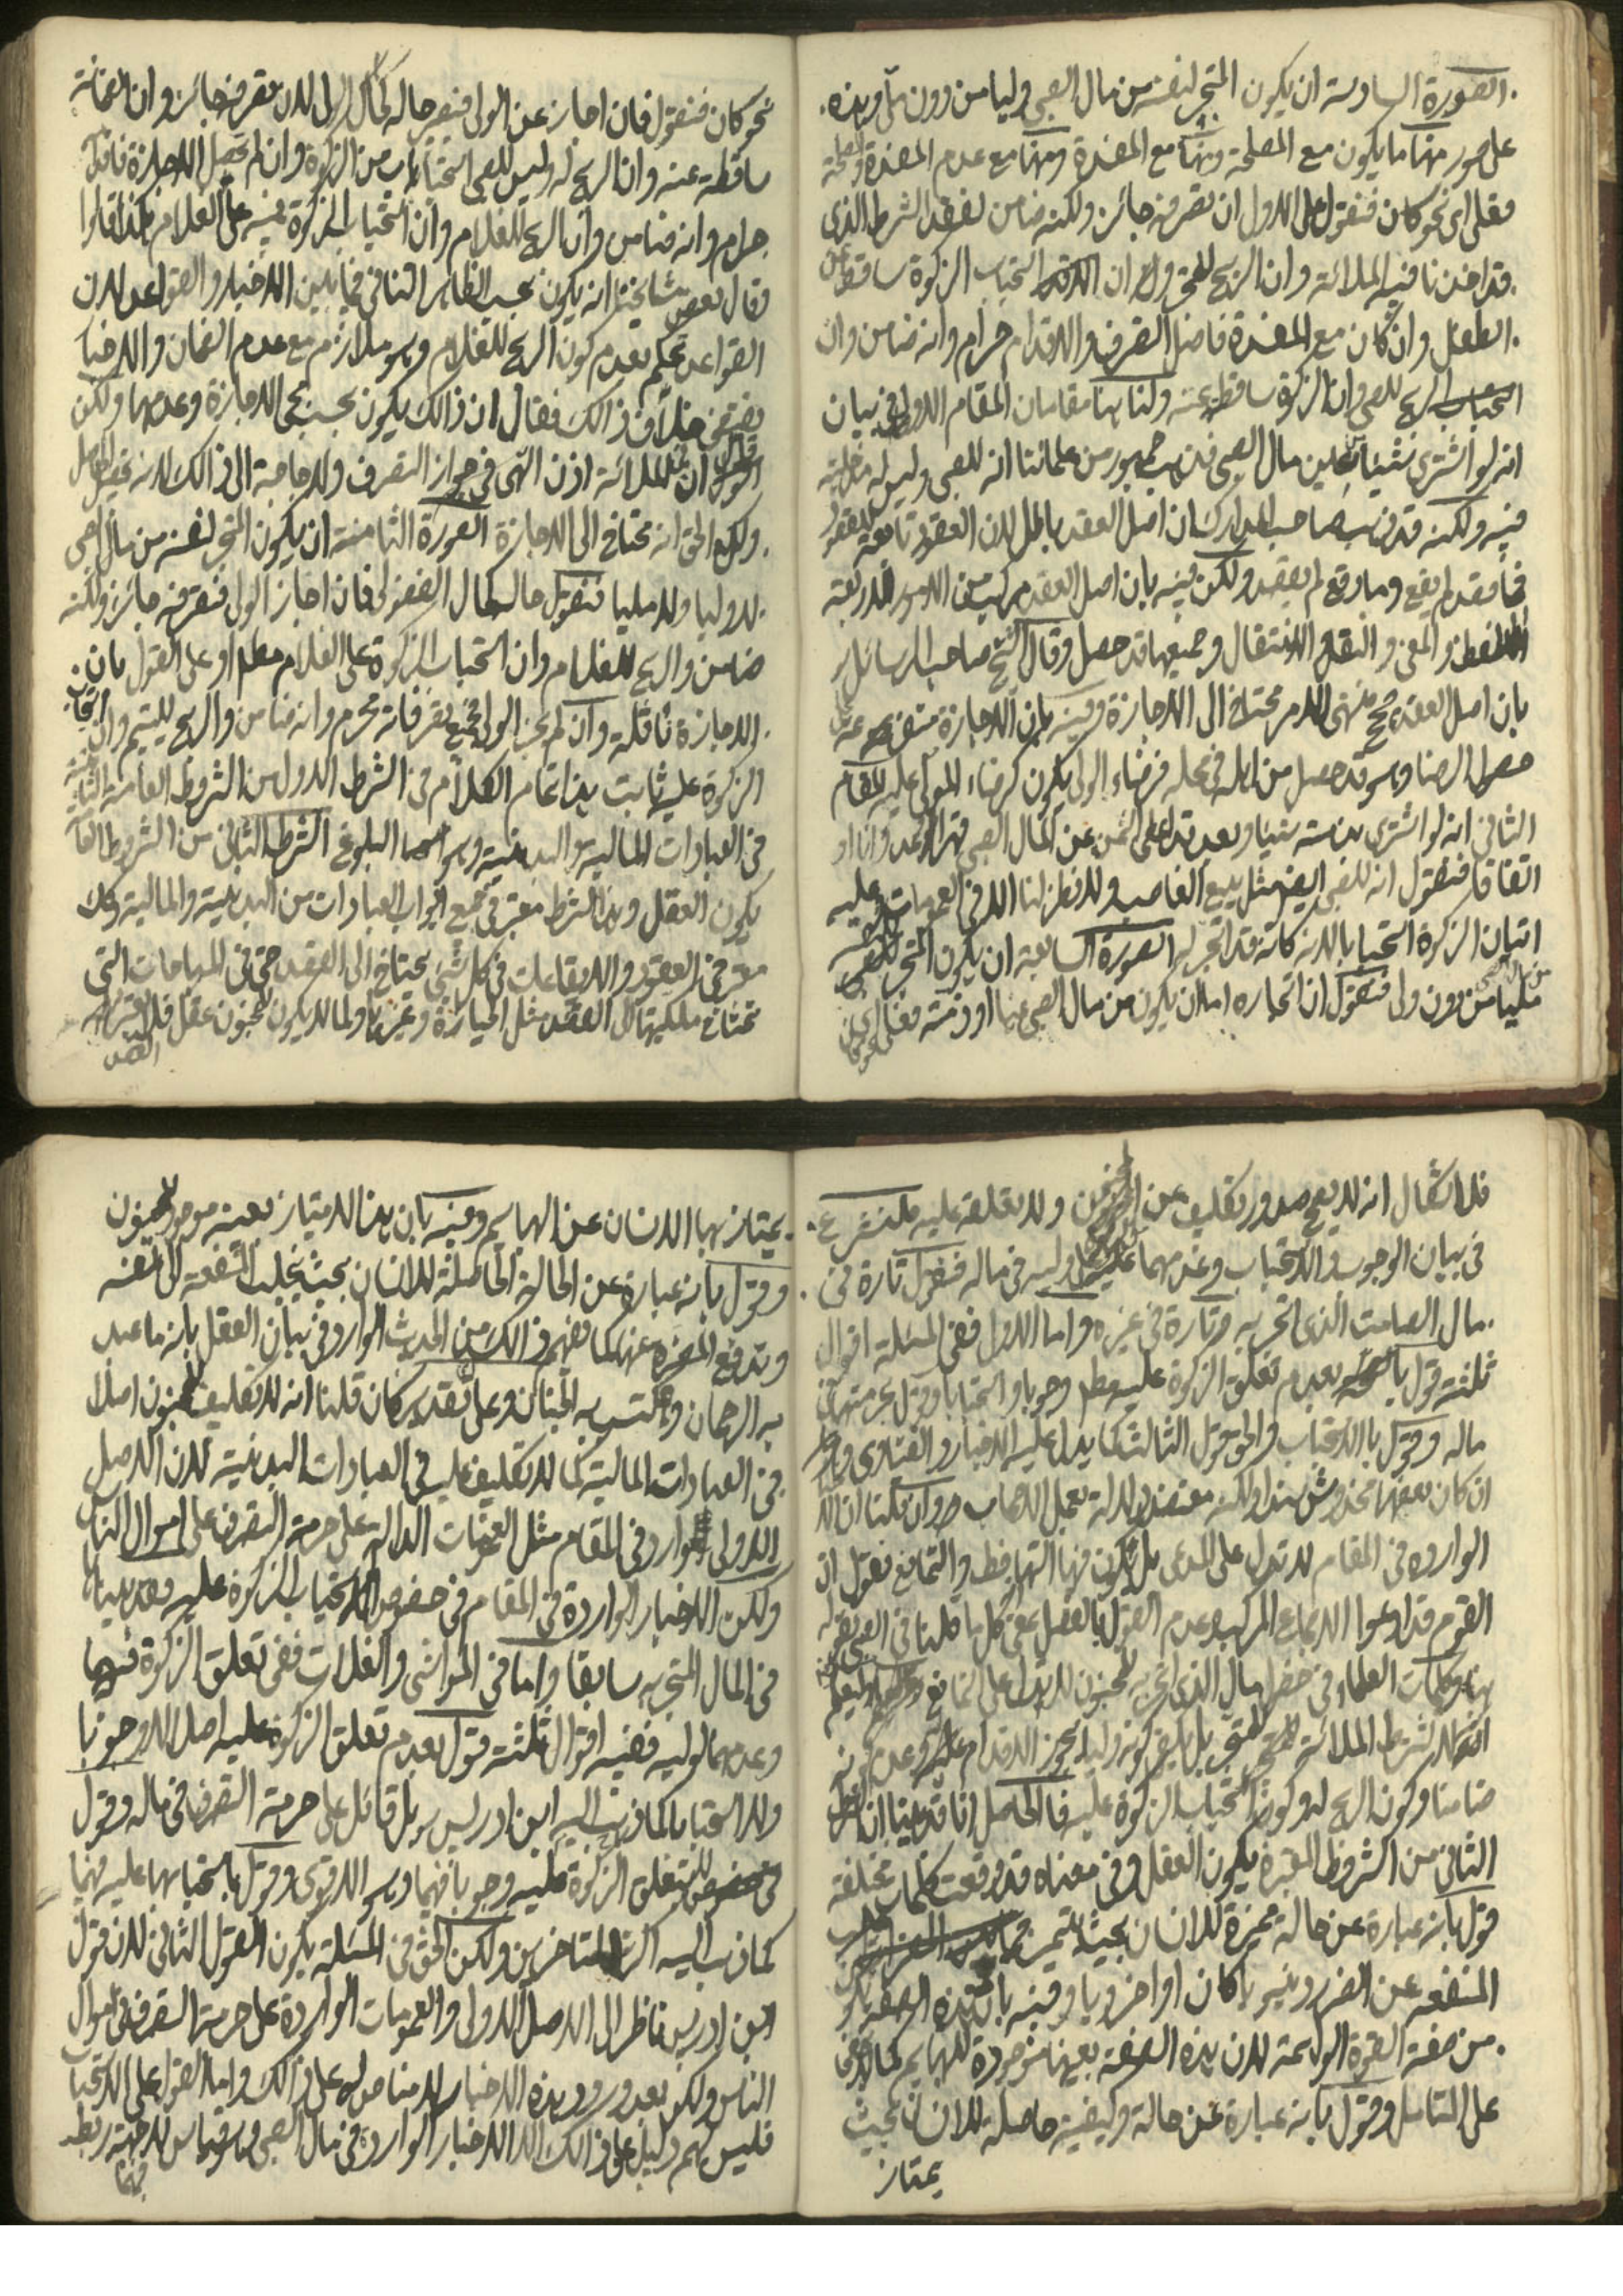 الصورة السادسة ان يكون المتجر لنفسه من مال الصبي وليا من دون ملأ وهذه
على صور منها ما يكون مع المصلحة ومنها مع المفسدة ومنها مع عدم المفسدة والمصلحة
فعلى اى نحو كان فنقول على الاول ان تصرفه جائز ولكنه ضامن لفقد الشرط الذى
قد اخذنا فيه الملائة وان الربح استحباب الزكوة ساقط عن
الطفل وان كان مع المفسدة فاصل التصرف والاقدام حرام وانه ضامن وان
الربح للصبي وان الزكوة ساقطة عنه ولنا هنا مقامان المقام الاول في بيان
انه لو اشترى شيئا بعين مال الصبي فذهب جمهور من علمائنا انه للصبي وليس له مدخلية
فيه ولكنه قد ذهب صاحب المدارك بان اصل العقد باطل لان العقود تابعة للقصود
فما قصد لم يقع وما وقع لم يقصد ولكن فيه بان اصل العقد مركب من الامور الاربعة
اللفظ والمعنى والنقل والانتقال وجميعها قد حصل وقال الشيخ صاحب الرسائل
بان اصل العقد صحيح منتهى الامر محتاج الى الاجازة وفيه بان الاجازة
حصول الرضا وهو قد حصل من اهله في محله فرضاء الولى يكون كرضاء المولى عليه المقام
الثاني انه لو اشترى بذمته شيئا وبعد قد اعطى الثمن عن المال الصبي
اتفاقا فنقول انه للصبي ايضا مثل بيع الغاصب ولا نظر لنا الا في العمومات
اتيان الزكوة استحبابا لانه كانه قد اتجر له الصورة السابعة ان يكون المتجر لنفسه
مليا من دون ولى فنقول ان اتجاره اما ان يكون من مال الصبي عينا او ذمته فعلى اى
نحو كان فنقول فان اجاز عن الولى فتصير حاله كحال الولى لان تصرفه جائز وان الضمانة
ساقطة عنه وان الربح له وليس للصبي استحباب من الزكوة وان لم يحصل الاجازة فاقدامه
حرام وانه ضامن وان الربح للغلام وان استحباب الزكوة فيه على الغلام هكذا قالوا
وقال بعض مشايخنا انه يكون بحسب الظاهر التنافي فيما بين الاخبار والقواعد لان
القواعد تحكم بعدم كون الربح للغلام وهو ملازم مع عدم الضمان والاخبار
يقتضي خلاف ذالك فقال ان ذالك يكون بحسب الاجازة وعدمها ولكن
ان الملائة اذن الهى في جواز التصرف ولا حاجة الى ذالك لانه تحصيل الحاصل
ولكن الحق انه محتاج الى الاجازة الصورة الثامنة ان يكون المتجر لنفسه من مال الصبي
لا وليا ولا مليا فنقول حاله كحال الفضولى فان اجاز الولى فتصرفه جائز ولكنه
ضامن والربح للغلام وان استحباب الزكوة على الغلام مطلقا وعلى القول بان
الاجازة ناقلة وان لم يجز الولى فجميع تصرفاته محرم وانه ضامن والربح لليتيم وان استحباب
الزكوة عليه ثابت هذا تمام الكلام في الشرط الاول من الشروط العامة الثابتة
في العبادات المالية والبدنية وهو البلوغ الشرط الثاني من الشروط العامة
يكون العقل وهذا الشرط معتبر في جميع ابواب العبادات من البدنية والمالية وكك
معتبر في العقود والايقاعات في كل شئ يحتاج الى القصد حتى في المباحات التي
تحتاج ملكيتها الى القصد مثل الحيازة وغيرها ولما لا يكون لمجنون عقل فلا
القصد
فلا اشكال انه لا يصح صدور تكليف عن المجنون ولا تعلقه عليه فلنشرع
في بيان الوجوب والاستحباب وعدمهما على وليه في ماله فنقول تارة في
مال الصامت الذى اتجر به وتارة في غيره واما الاول ففي المسئلة اقوال
ثلثة قول بعدم تعلق الزكوة عليه مطلقا وجوبا واستحبابا وقول
ماله وقول باالاستحباب والحق قول الثالث كما يدل عليه الاخبار والفتاوى
ان كان بعضها مخدوش سندا ولكنه معتضد بعمل الاصحاب وان قلنا ان
الواردة في المقام لا تدل على المدعى بل يكون فيها التهافط والتمانع نقول ان
القوم قد ادعوا الاجماع المركب وعدم القول بالفصل بمعنى كل ما قلنا في الصبي نقول
هنا وكلمات العلماء في خصوص مال الذى اتجر به لمجنون لا يدل على
الشرط الملائة للمتجر بل يكفي كونه وليا يجوز الاقدام عليه وعدم كونه
ضامنا وكون الربح له وكون استحباب الزكوة عليه فالحاصل انا قد بينا ان الشرط
الثاني من الشروط المعتبرة يكون العقل وفي معناه قد وقعت كلمات مختلفة
قول بانه عبارة عن حالة مميزة للانسان بحيث يتميز
المنفعه عن الضرر دنيويا كان او اخرويا وفيه بان هذه الصفة
من صفة القوة الواهمة لان هذه الصفة بعينها موجودة للبهايم كما لا يخفى
على المتامل وقول بانه عبارة عن حالة وكيفية حاصلة للانسان بحيث
يمتاز
يمتاز بها الانسان عن البهايم وفيه بان هذا الامتياز بعينه موجود لمجنون
وقول بانه عبارة عن الحالة الحاصلة للانسان بحيث يجلب المنفعة الى نفسه
وتدفع المضرة عنها كما نفهم ذالك من الحديث الوارد في بيان العقل بانه ما عبد
به الرحمان واكتسب به الجنان وعلى اى تقدير كان قلنا انه لا تكليف لمجنون اصلا
في العبادات المالية كما لا تكليف عليه في العبادات البدنية لان الاصل
الاولى الوارد في المقام مثل العمومات الدالة على حرمة التصرف على اموال الناس
ولكن الاخبار الواردة في المقام في خصوص استحباب الزكوة عليه وقد بينا
في المال المتجر به سابقا واما في المواشى والغلات ففي تعلق الزكوة فيها
وعدمها لوليه ففيه اقوال ثلثة قول بعدم تعلق الزكوة عليه اصلا لا وجوبا
ولا استحبابا كما ذهب اليه ابن ادريس بل قائل على حرمة التصرف في ماله وقول
تعلق الزكوة عليه وجوبا فيهما وهو الاقوى وقول باستحبابها عليه فيهما
كما ذهب اليه اكثر المتاخرين ولكن الحق في المسئلة يكون القول الثاني لان قول
ابن ادريس ناظر الى الاصل الاولى والعمومات الواردة على حرمة التصرف في اموال
الناس ولكن بعد ورود هذه الاخبار لا مناص له على ذالك واما القول على الاستحباب
فليس لهم دليل على ذالك الا الاخبار الواردة في مال الصبي وهو قياس لا جهة ربط
فيها